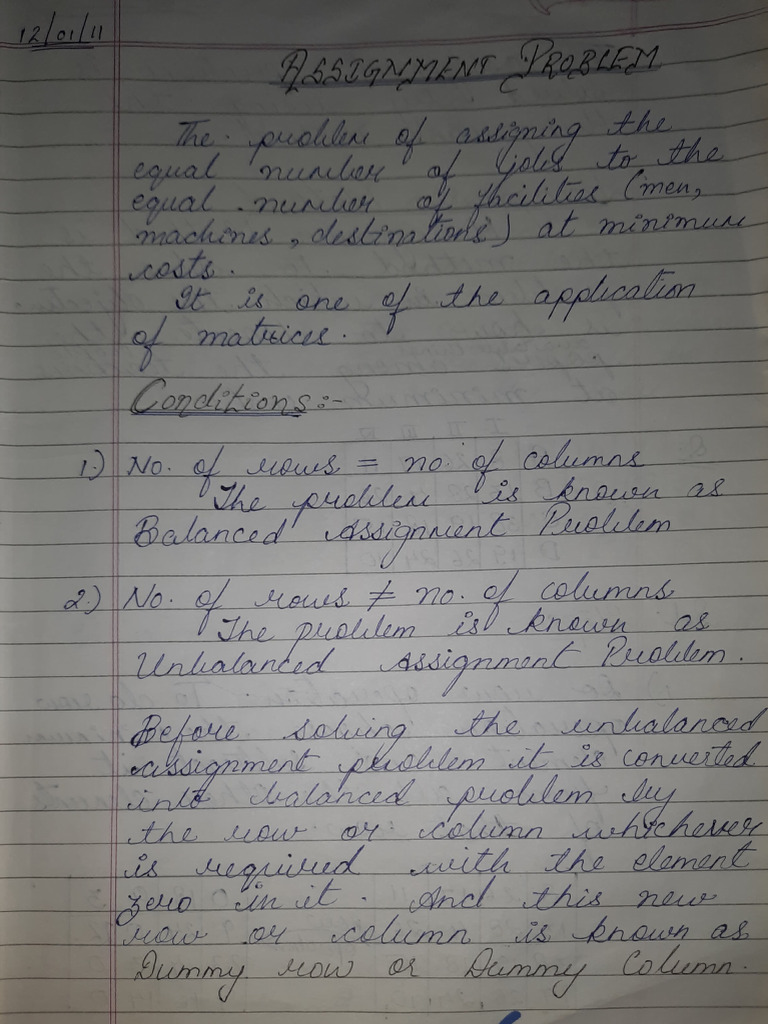 12/01/11
ASSIGNMENT PROBLEM
The problem of assigning the
equal number of jobs to the
equal number of facilities (men,
machines, destinations) at minimum
costs.
It is one of the application
of matrices.
Conditions:-
1.) No. of rows = no. of columns
The problem is known as
Balanced Assignment Problem
2.) No. of rows ≠ no. of columns
The problem is known as
Unbalanced Assignment Problem.
Before solving the unbalanced
assignment problem it is converted
into balanced problem by
the row or column whichever
is required with the element
zero in it. And this new
row or column is known as
Dummy row or Dummy Column.